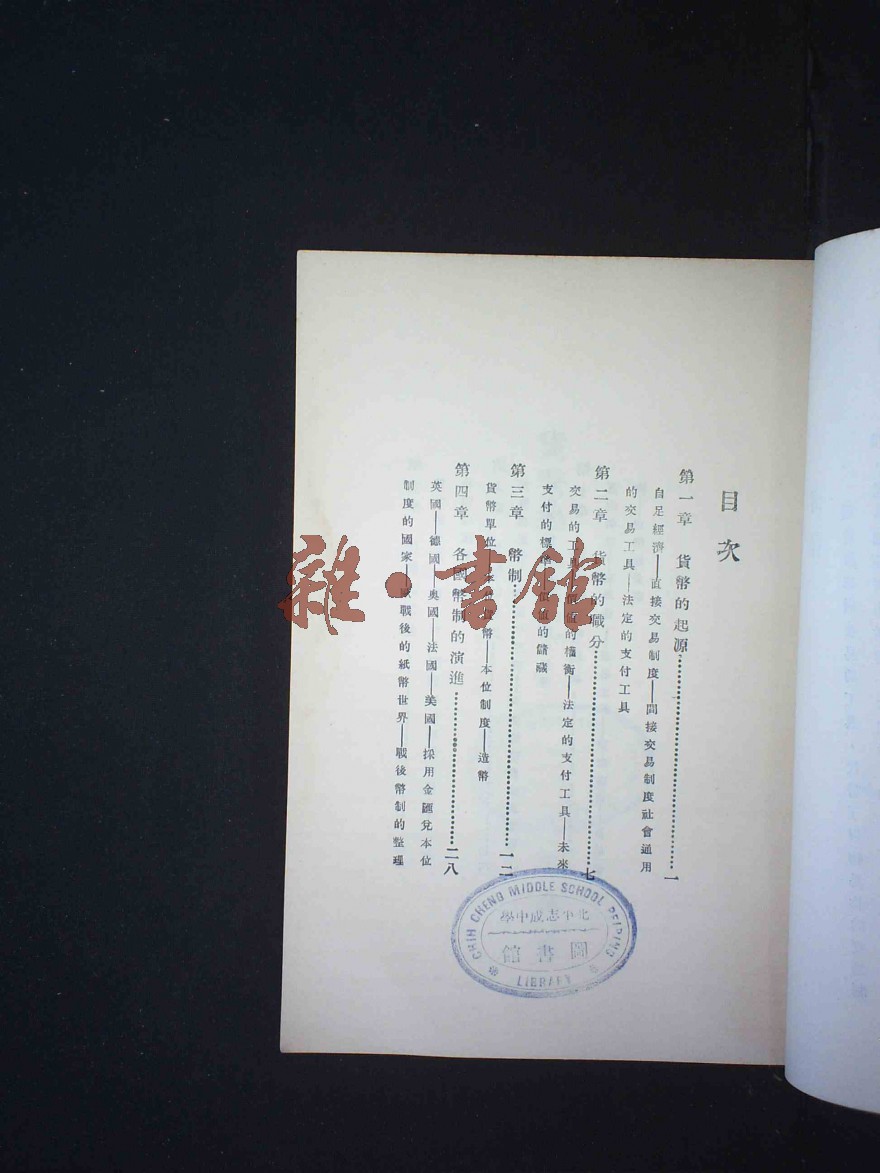 目次
第一章 貨幣的起源……一
自足經濟——直接交易制度——間接交易制度社會通用
的交易工具——法定的支付工具
第二章 貨幣的職分……七
交易的工具——價值的權衡——法定的支付工具——未來
支付的標準——價值的儲藏
第三章 幣制……一二
貨幣單位——幣——本位制度——造幣
第四章 各國幣制的演進……二八
英國——德國——奧國——法國——美國——採用金匯兌本位
制度的國家——歐戰後的紙幣世界——戰後幣制的整理
雜·書館
CHIH CHENG MIDDLE SCHOOL PEIPING
北平志成中學
圖書館
LIBRARY